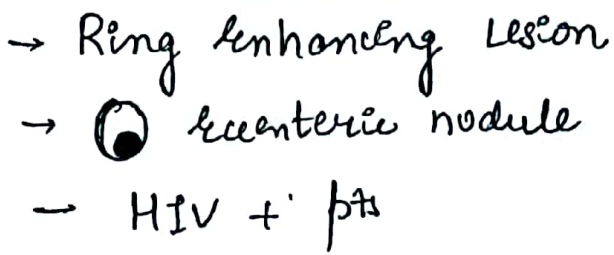 → Ring enhancing Lesion
→ eccenteric nodule
– HIV + pts